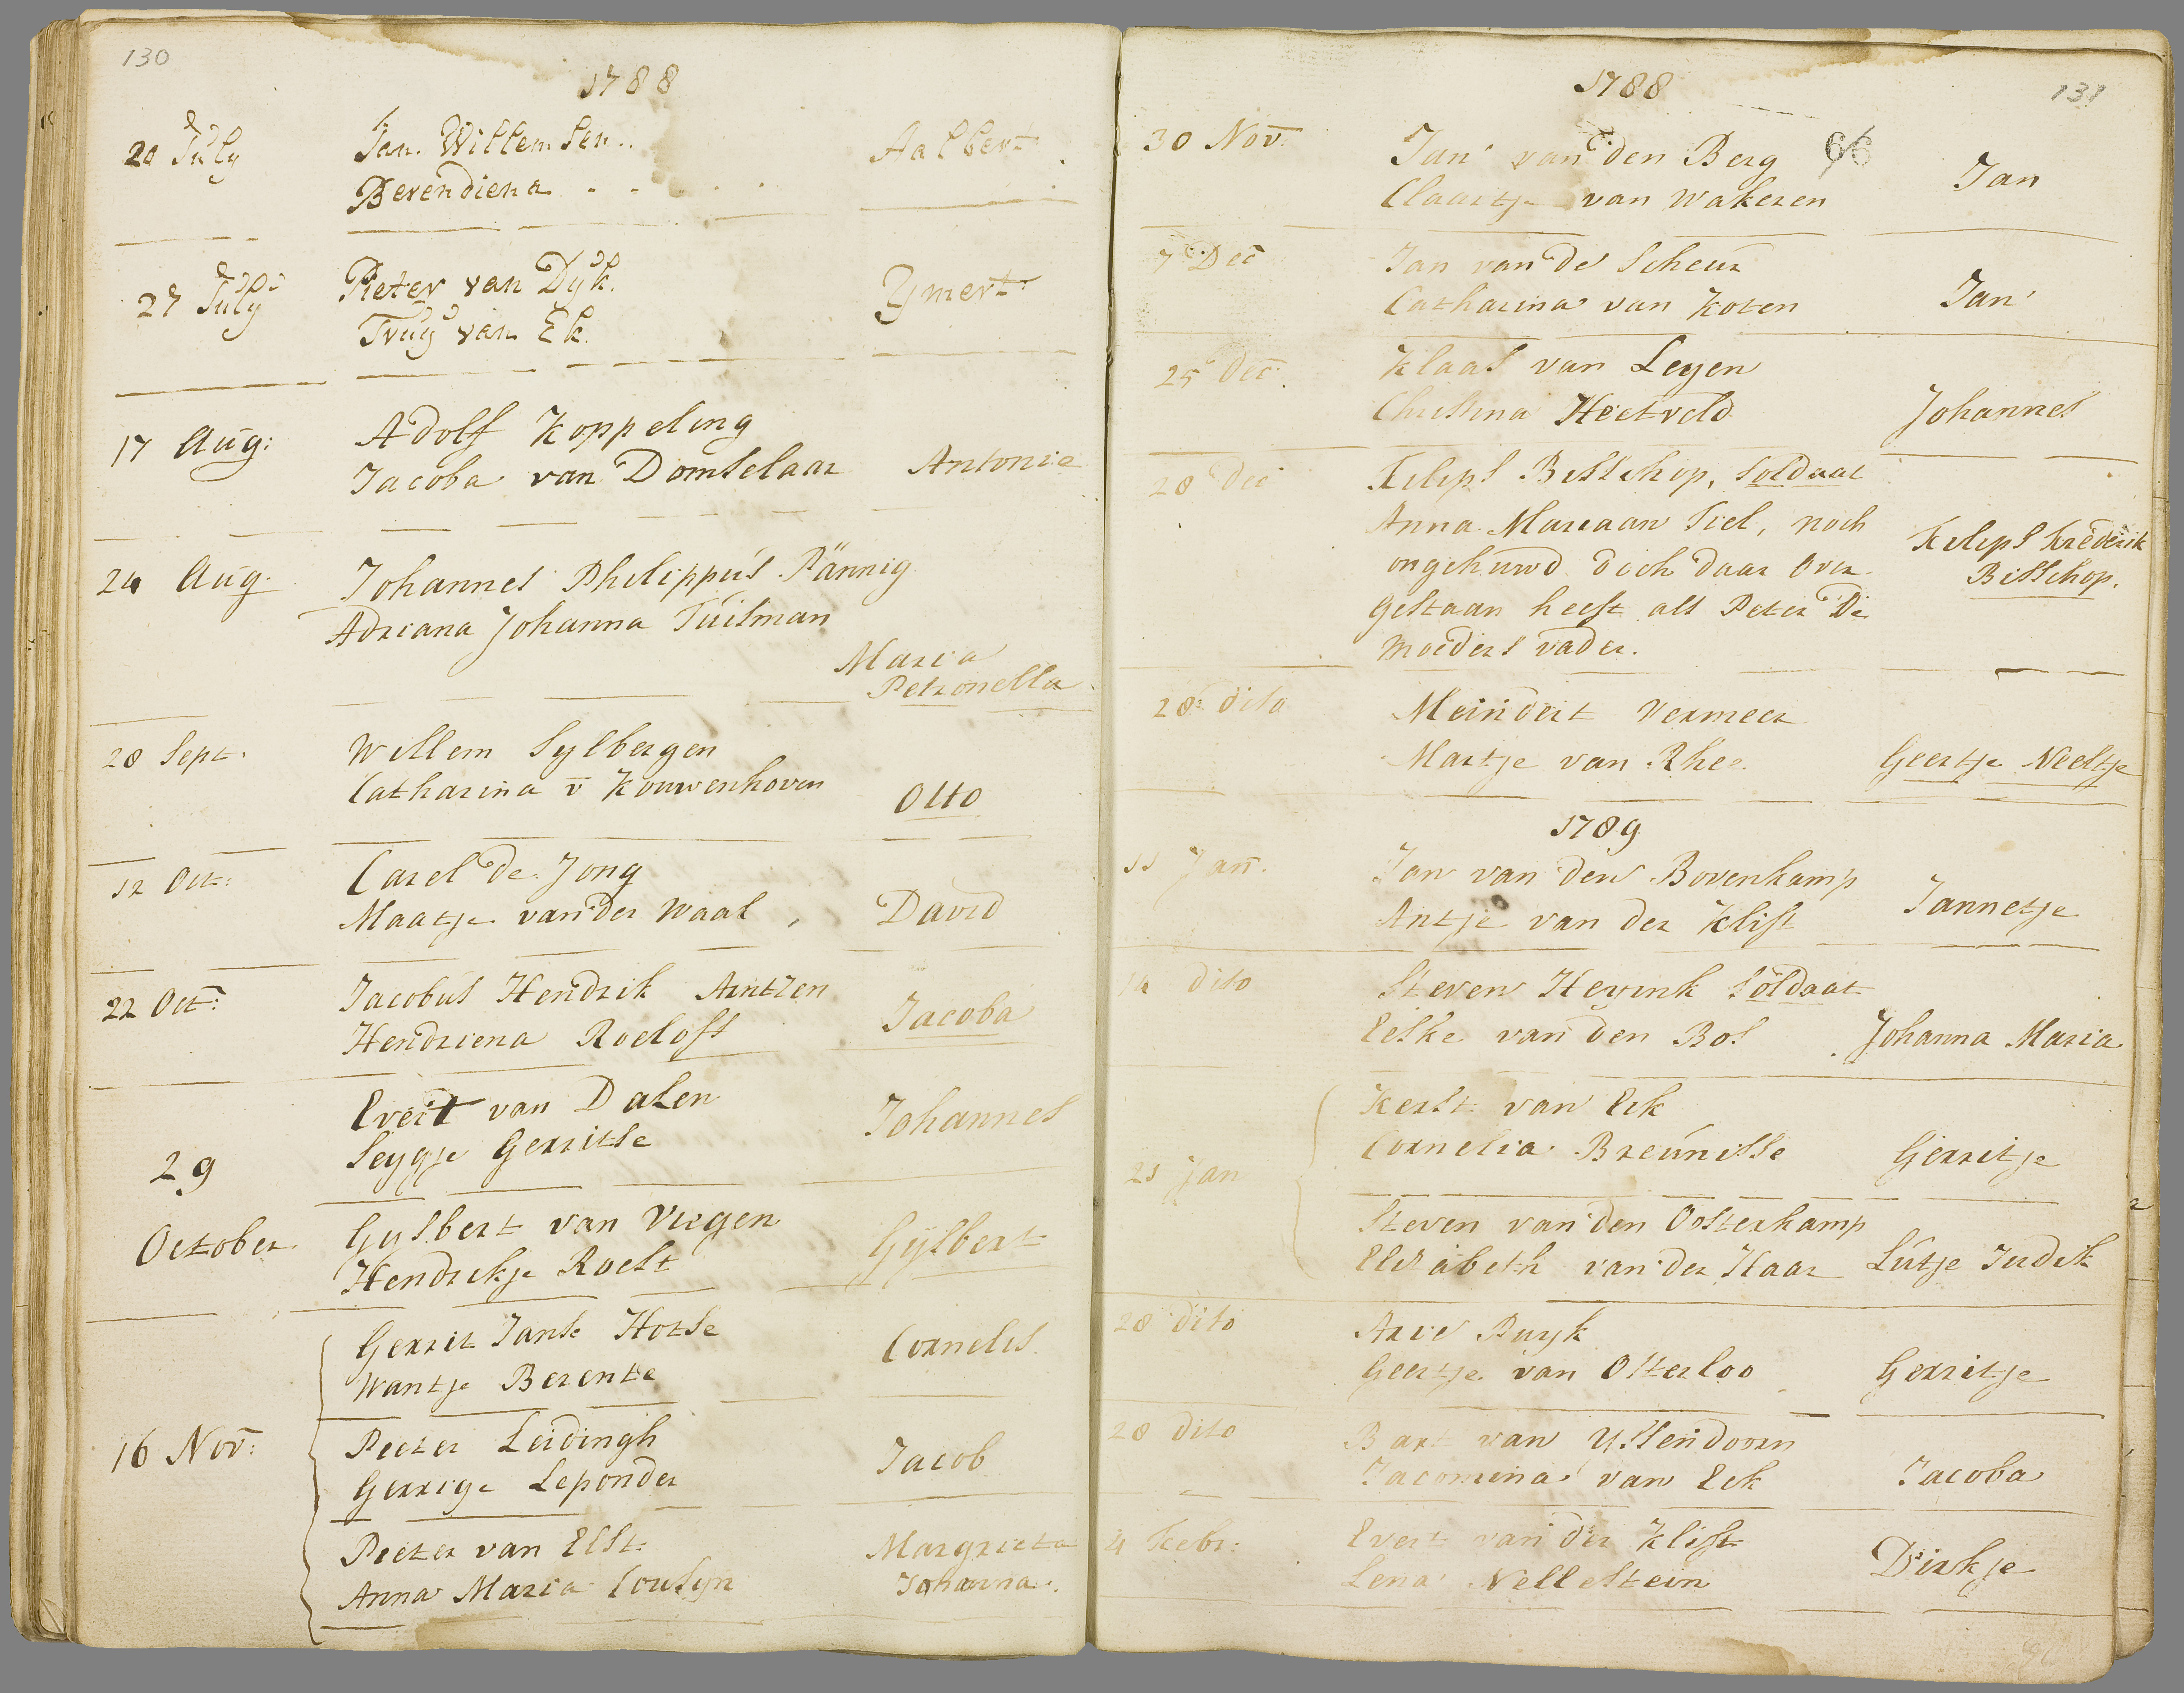 130
1788
20 July Jan. Willemsen.. Aalbert
Berendiena . . . . .
27 July Pieter van Dÿk. Ymert
Truÿ van Ek.
17 Aug: Adolf Koppeling
Jacoba van Domselaar Antonie
24 Aug. Johannes Philippus Pännig
Adriana Johanna Tuisman
Maria
Petronella
28 Sept. Willem Sylbergen
Catharina v̄ Kouwenhoven Otto
12 Oct: Carel de Jong
Maatje van der Waal, David
22 Oct: Jacobus Hendrik Arntzen Jacoba
Hendriena Roelofs
Evert van Dalen Johannes
29 Seygje Gerritse
October Gysbert van Viegen Gysbert
Hendrikje Roelt
Gerrit Janse Hotse Cornelis
Wantje Berentse
16 Nov: Peeter Leidingh Jacob
Gerrigje Leponder
Pieter van Elst Margrieta
Anna Maria CouSyn Johanna.
1788
131
66
30 Nov. Jan van den Berg Jan
Claartje van Wakeren
7 Dec Jan van de Scheur Jan
Catharina van Koten
25 Dec. Klaas van Leyen
Christina Heetveld Johannes
28 Dec Filips Bisschop, Soldaat
Anna Mariaan Tiel, noch Filips Frederik
ongehuwd doch daar Over Bisschop.
gestaan heeft als Peter De
moeders vader.
28 dito Meindert Vermeer
Martje van Rhee Geertje Neeltje
1789
11 Jan. Jan van den Bovenkamp Jannetje
Antje van der Klift
14 dito Steven Heyink Soldaat
Eelke van den Bos Johanna Maria
Kerst van Eck
Cornelia Breunisse Gerritje
21 Jan
Steven van den Oosterkamp
Elisabeth van der Haar Lutje Judik
28 dito Arie Buyk
Geertje van Otterloo Gerritje
28 dito Bart van Yssendoorn
Jacomina van Eck Jacoba
4 Febr: Evert van der Klift
Lena Nellestein Dirkje